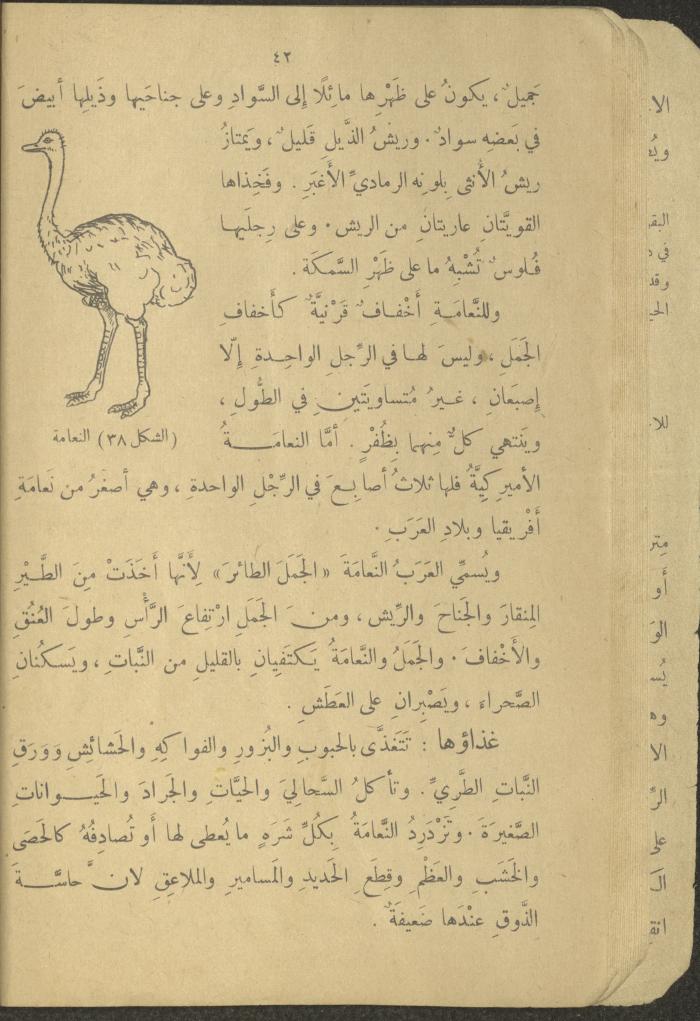 ٤٢
جَميلٌ ، يكونُ على ظَهْرِها مائِلًا إلى السَّوادِ وعلى جناحَيها وذَيلِها أبيضَ
في بَعضهِ سوادٌ . وريشُ الذَّيلِ قَليلٌ ، وَيَمتازُ
ريشُ الأُنثى بِلونِه الرماديِّ الأَغبَرِ . وفَخِذاها
القويَّتانِ عاريتانِ من الريش . وعلى رِجلَيها
فُلوسٌ تُشْبِهُ ما على ظَهْرِ السَّمكَة .
وللنَّعامَةِ أَخْفافٌ قَرْنيَّةٌ كأَخفافِ
الجَمَلِ ، وليسَ لها في الرِّجلِ الواحِدةِ إلّا
إصبَعانِ ، غيرُ مُتساويَتَينِ في الطُّولِ ،
وَيَنتهي كلٌّ مِنهما بِظُفْرٍ . أمَّا النعامَةُ
(الشكل ٣٨) النعامة
الأميركيَّةُ فلها ثلاثُ أصابِعَ في الرِّجْلِ الواحدةِ ، وهي أصغَرُ من نَعامَةِ
أفْريقيا وبلادِ العَرَبِ .
ويُسمِّي العَرَبُ النَّعامَةَ «الجَمَلَ الطائرَ» لِأَنَّها أَخَذَتْ مِنَ الطَّيْرِ
المِنقارَ والجَناحَ والرِّيش ، ومنَ الجَمَلِ ارْتِفاعَ الرَّأْسِ وطولَ العُنُقِ
والأَخْفافَ . والجَمَلُ والنَّعامَةُ يَكتَفِيانِ بالقليلِ من النَّباتِ ، ويَسكُنانِ
الصَّحراءَ ، ويَصْبِرانِ على العَطَشِ .
غذاؤها : تَتَغذَّى بالحبوبِ والبُزورِ والفواكِهِ والحَشائِشِ وَوَرَقِ
النَّباتِ الطَّرِيِّ . وتأكلُ السَّحاليَ والحيَّاتِ والجَرادَ والحَيَواناتِ
الصَّغيرَةَ . وتَزْدَرِدُ النَّعامَةُ بِكُلِّ شَرَهٍ ما يُعطى لها أو تُصادِفُهُ كالحَصَى
والخَشَبِ والعَظْمِ وقِطَعِ الحَديدِ والمَساميرِ والملاعِقِ لانَّ حاسَّةَ
الذَّوقِ عنْدَها ضَعيفَةٌ .